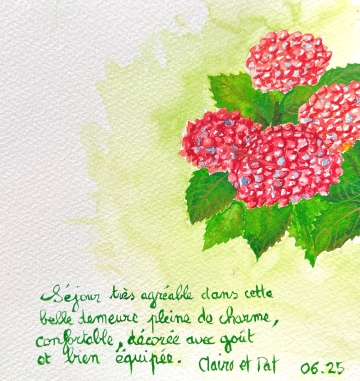 Séjour très agréable dans cette
belle demeure pleine de charme,
confortable, décorée avec goût
et bien équipée. Claire et Pat 06.25